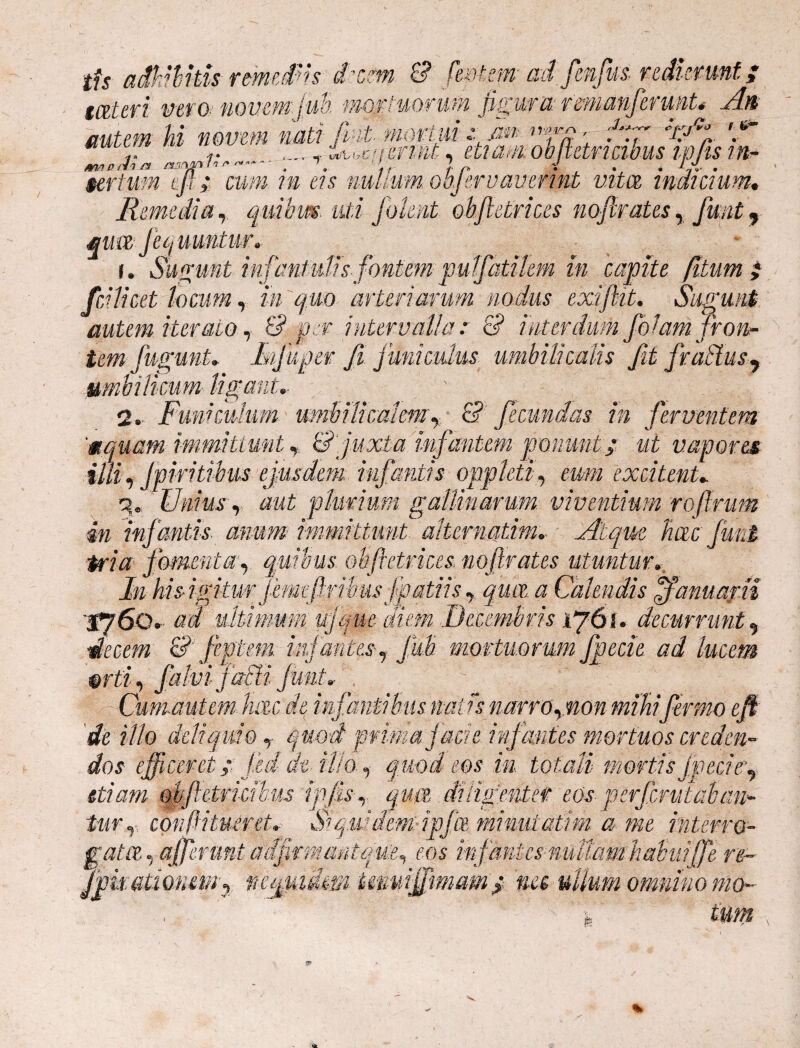 tis adhibitis remediis decem & septem ad sensus redierunt;
cæteri vero novem sub mortuorum figura remanserunt. An
autem hi novem nati sint mortui: an
etiam obstetricibus ipsis in-
sertum est; cum in eis nullum observaverint vitæ indicium.
Remedia, quibus uti solent obstetrices nostrates, sunt,
quæ sequuntur.
1. Sugunt infantulis fontem pulsatilem in capite situm;
scilicet locum, in quo arteriarum nodus existit. Sugunt
autem iterato, & per intervalla: & interdum solam fron-
tem sugunt. Insuper si funiculus umbilicalis sit fractus,
umbilicum ligant.
2. Funiculum umbilicalem, & secundas in ferventem
aquam immittunt, & juxta infantem ponunt; ut vapores
illi, spiritibus ejusdem infantis oppleti, eum excitent.
3. Unius, aut plurium gallinarum viventium rostrum
in infantis anum immittunt alternatim. Atque hæc sunt
tria fomenta, quibus obstetrices nostrates utuntur.
In his igitur semestribus spatiis, quæ a Calendis Januarii
1760. ad ultimum usque diem Decembris 1761. decurrunt,
decem & septem infantes, sub mortuorum specie ad lucem
orti, salvi facti sunt.
Cum autem hæc de infantibus natis narro, non mihi sermo est
de illo deliquio, quod prima facie infantes mortuos creden-
dos efficeret; sed de illo, quod eos in totali mortis specie,
etiam obstetricibus ipsis, quæ diligenter eos perscrutaban-
tur, constitueret. Siquidem ipsæ minutatim a me interro-
gatæ, asserunt adfirmantque, eos infantes nullam habuisse re-
spirationem, nequidem tenuissimam; nec ullum omnino mo-
tum